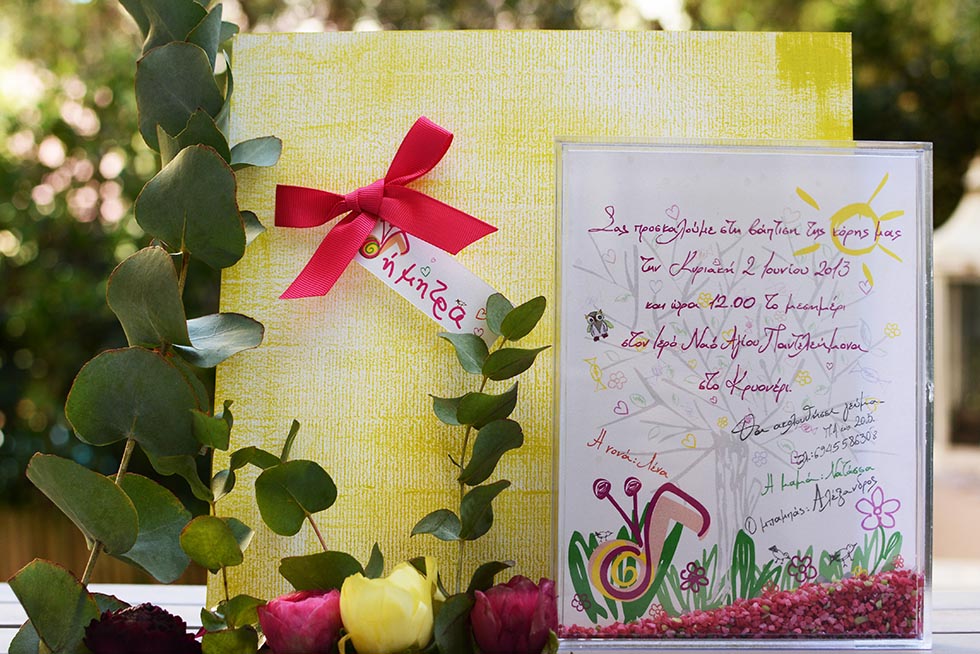 Δήμητρα
Σας προσκαλούμε στη βάπτιση της κόρης μας
την Κυριακή 2 Ιουνίου 2013
και ώρα 12.00 το μεσημέρι
στον Ιερό Ναό Αγίου Παντελεήμονα
στο Κρυονέρι.
Θα ακολουθήσει γεύμα
Η νονά: Λένα
Η μαμά: Νατάσσα
Ο μπαμπάς: Αλέξανδρος